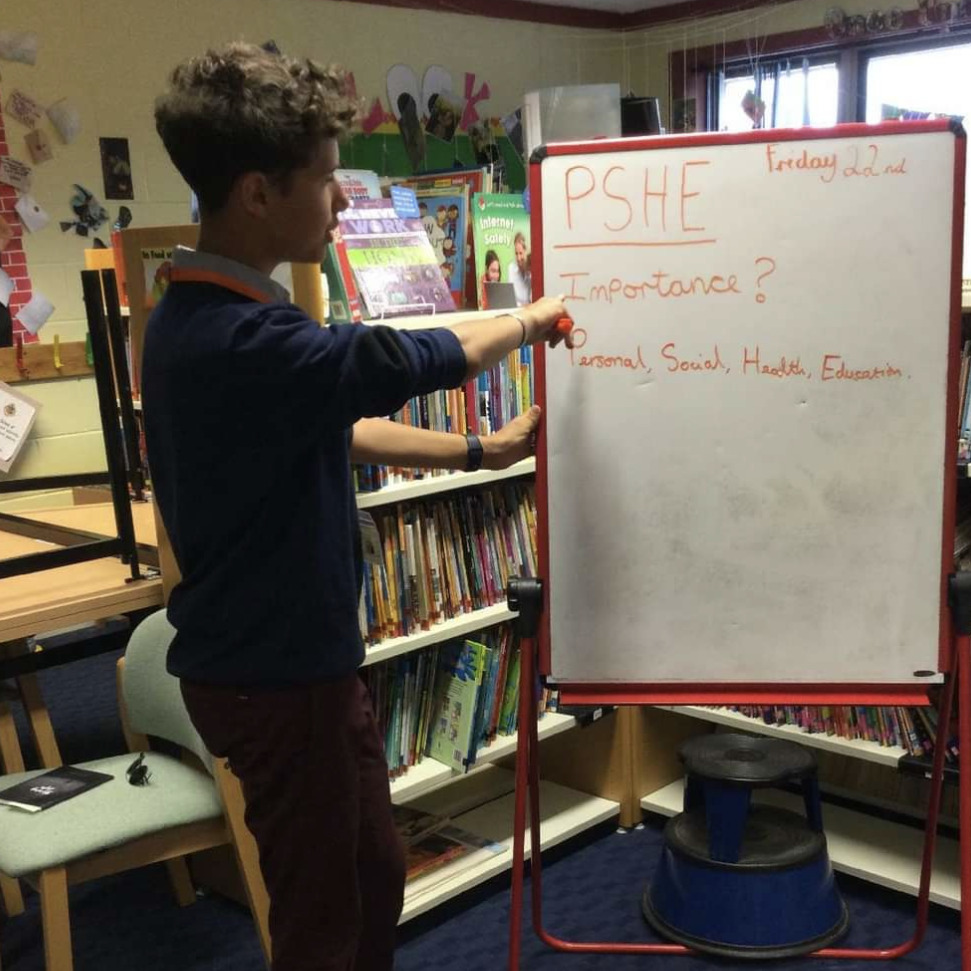 Friday 22nd
PSHE
Importance?
Personal, Social, Health, Education.
Internet
Safety
WORK